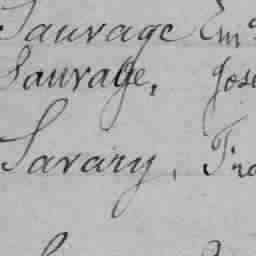 Sauvage Em
Sauvage, Jose
Savary, Fra